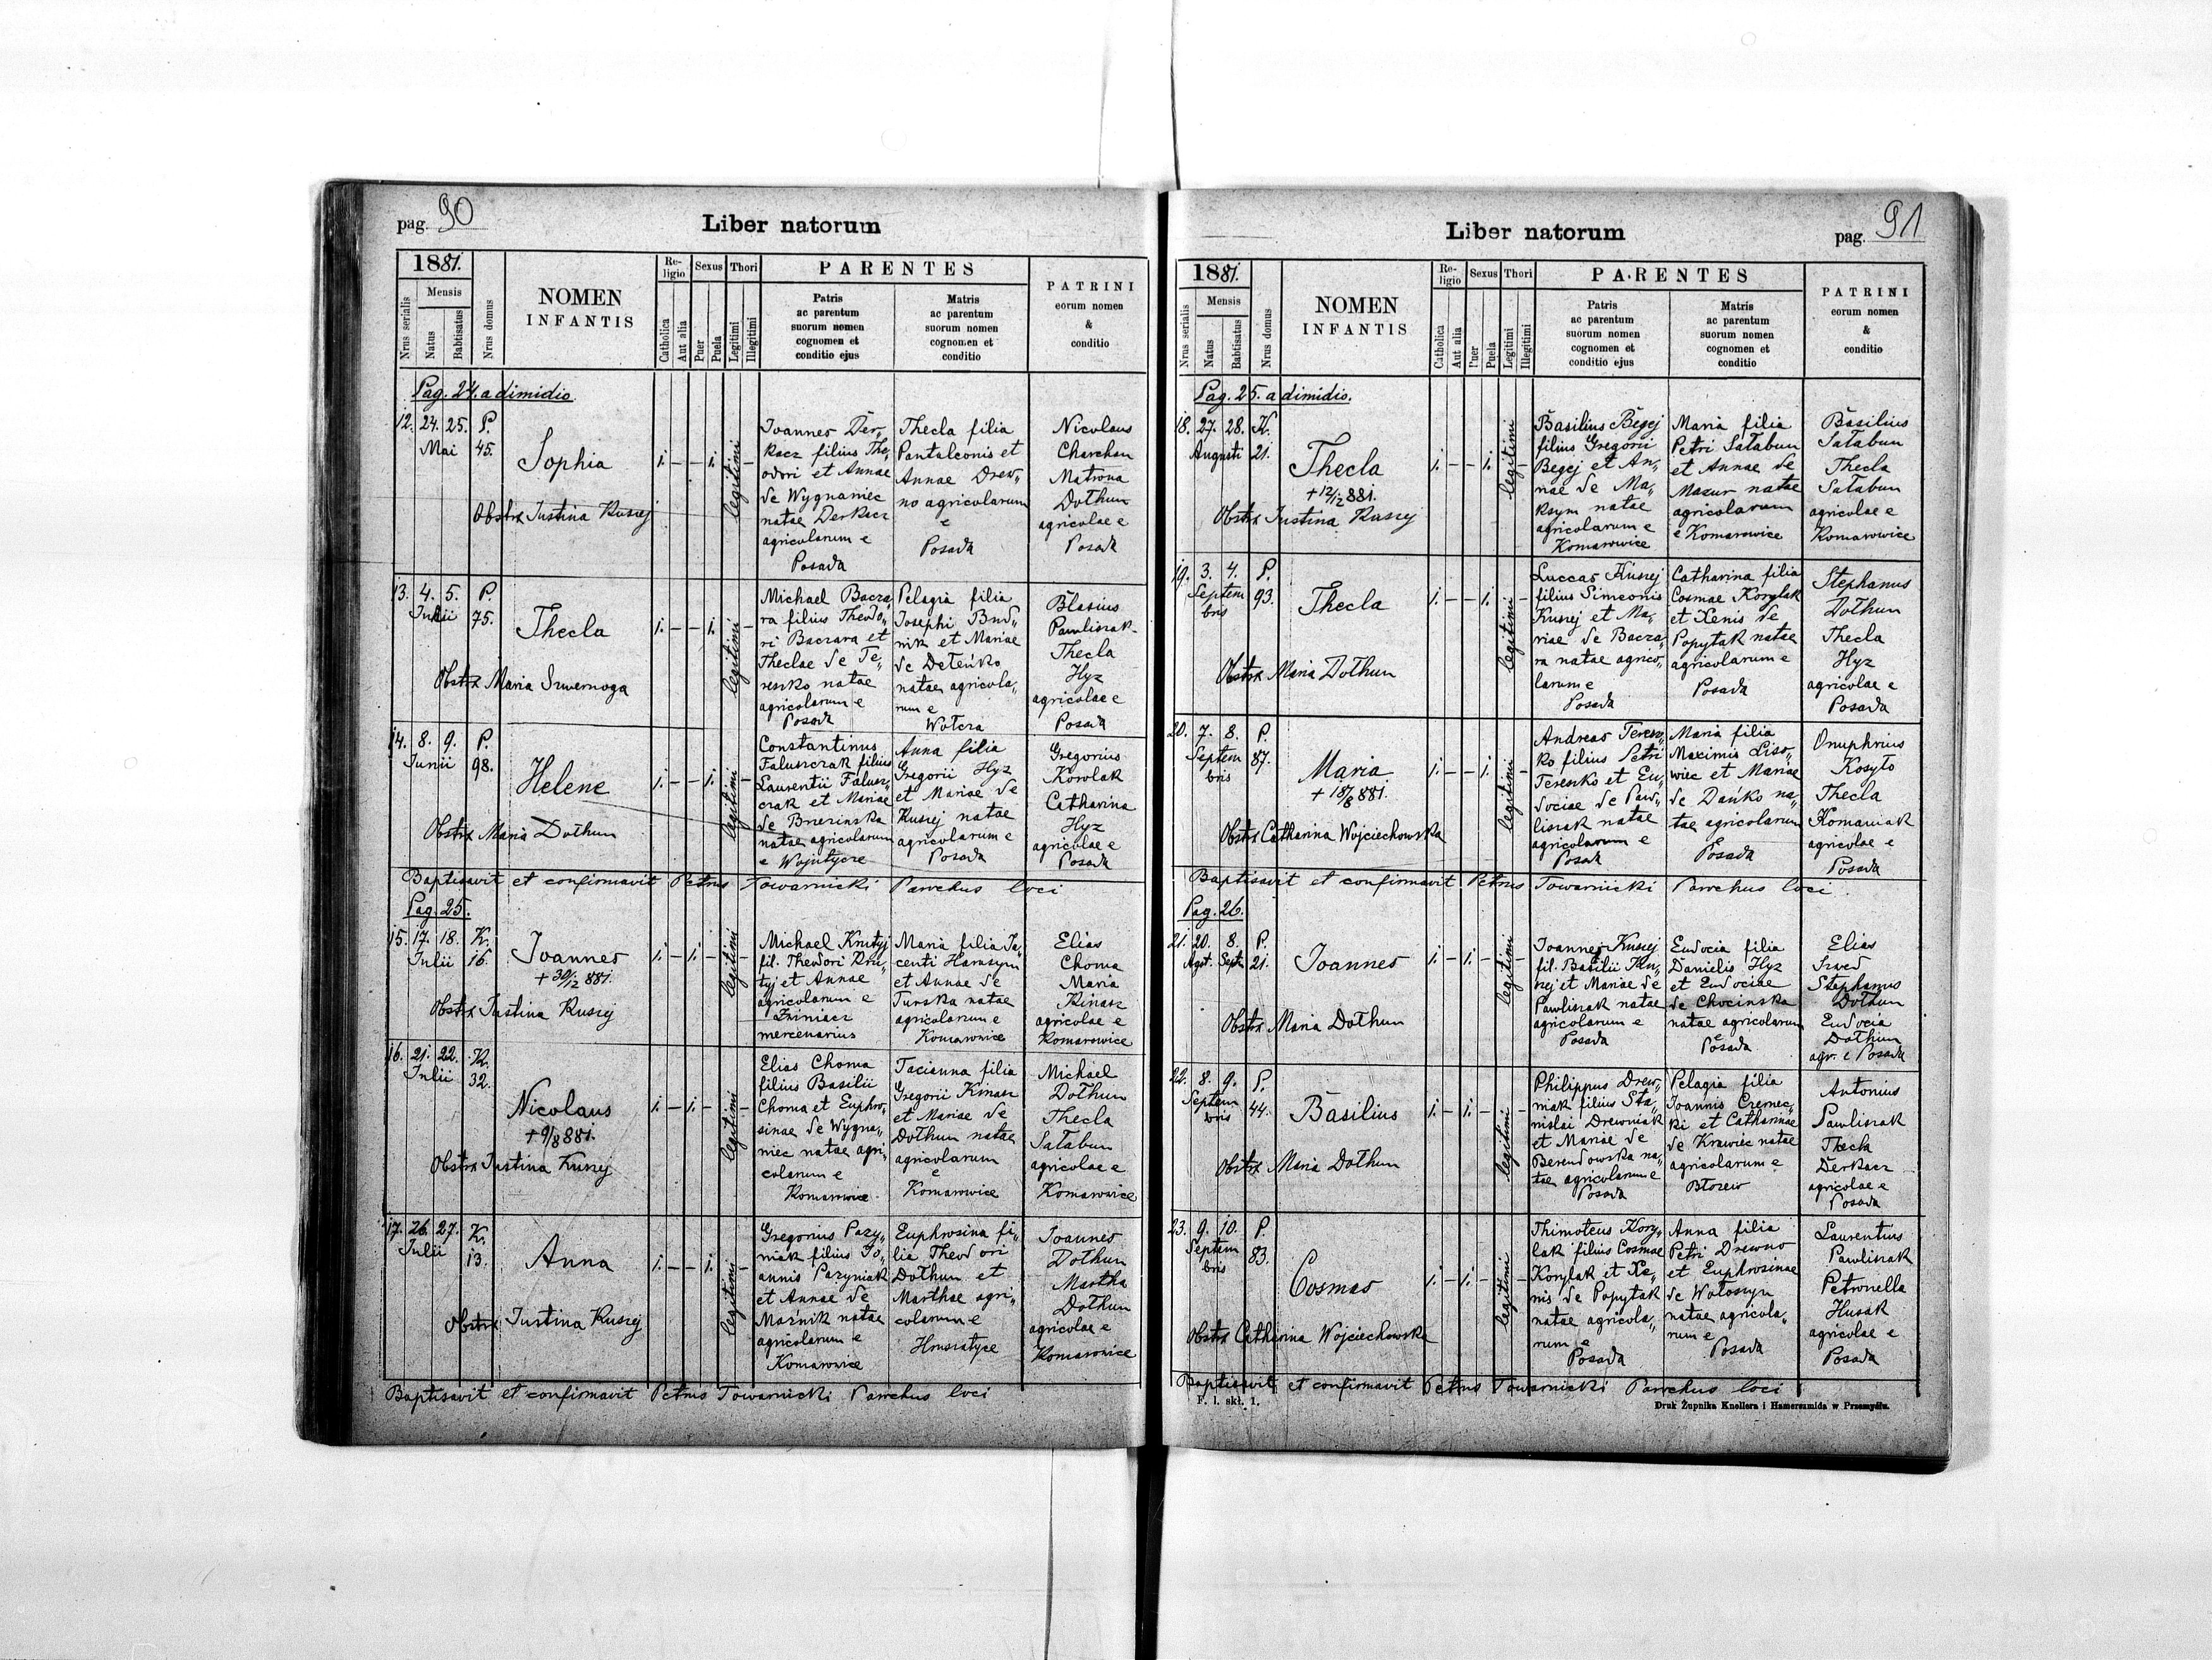 pag. 90
Liber natorum
1881.
Mensis
Nrus serialis
Natus
Babtisatus
Nrus domus
NOMEN
INFANTIS
Re-
ligio
Sexus
Thori
Catholica
Aut alia
Puer
Puela
Legitimi
Illegitimi
PARENTES
Patris
ac parentum
suorum nomen
cognomen et
conditio ejus
Matris
ac parentum
suorum nomen
cognomen et
conditio
PATRINI
eorum nomen
&
conditio
Pag. 24. a dimidio.
12. 24. 25. P.
Mai 45.
Sophia
1. – – 1. legitimi –
Obstrx Justina Kuszej
Joannes Der„
kacz filius The„
odori et Annae
de Wygnaniec
natae Derkacz
agricolarum e
Posada
Thecla filia
Pantaleonis et
Annae Drew„
no agricolarum
e
Posada
Nicolaus
Charchan
Matrona
Dołhun
agricolae e
Posada
13. 4. 5. P.
75.
Thecla
1. – – 1. legitimi –
Obstrx Maria
Michael Bacza„
ra filius Theodo„
ri Baczara et
Theclae de Te„
reszko natae
agricolarum e
Posada
Pelagia filia
Josephi Bud„
nik et Mariae
de
natae agricola„
rum e
Wołcza
Blasius
Pawliszak
Thecla
Hyz
agricolae e
Posada
14. 8. 9. P.
Junii 98.
Helene
1. – – 1. legitimi –
Obstrx Maria Dołhun
Constantinus
Faluszczak filius
Laurentii Falusz„
czak et Mariae
de Brzezinska
natae agricolarum
e Wojutycze
Anna filia
Gregorii Hyz
et Mariae de
Kuszej natae
agricolarum e
Posada
Gregorius
Kowlak
Catharina
Hyz
agricolae e
Posada
Baptisavit et confirmavit Petrus Towarnicki Parochus loci
Pag. 25.
15. 17. 18. K.
Julii 16.
Joannes
+ 30/12 881.
1. – 1. – legitimi –
Obstrx Justina Kuszej
Michael Krutyj
fil. Theodori Kru„
tyj et Annae
agricolarum e
mercenarius
Maria filia Ja„
centi Harasym
et Annae de
Turska natae
agricolarum e
Komarowice
Elias
Choma
Maria
Kinasz
agricolae e
Komarowice
16. 21. 22. K.
Julii 32.
Nicolaus
+ 9/8 881.
1. – 1. – legitimi –
Obstrx Justina Kuszej
Elias Choma
filius Basilii
Choma et Euphro„
sinae de Wygna„
niec natae agri„
colarum e
Komarowice
Tacianna filia
Gregorii Kinasz
et Mariae de
Dołhun natae
agricolarum
e
Komarowice
Michael
Dołhun
Thecla
Sałabun
agricolae e
Komarowice
17. 26. 27. K.
Julii 13.
Anna
1. – – 1. legitimi –
Obstrx Justina Kuszej
Gregorius Pazy„
niak filius Jo„
annis Pazyniak
et Annae de
Maźnik natae
agricolarum e
Komarowice
Euphrosina fi„
lia Theodori
Dołhun et
Marthae agri„
colarum e
Joannes
Dołhun
Martha
Dołhun
agricolae e
Komarowice
Baptisavit et confirmavit Petrus Towarnicki Parochus loci
Liber natorum
pag. 91
1881.
Mensis
Nrus serialis
Natus
Babtisatus
Nrus domus
NOMEN
INFANTIS
Re-
ligio
Sexus
Thori
Catholica
Aut alia
Puer
Puela
Legitimi
Illegitimi
PARENTES
Patris
ac parentum
suorum nomen
cognomen et
conditio ejus
Matris
ac parentum
suorum nomen
cognomen et
conditio
PATRINI
eorum nomen
&
conditio
Pag. 25. a dimidio.
18. 27. 28. K.
Augusti 21.
Thecla
+ 12/12 881.
1. – – 1. legitimi –
Obstrx Justina Kuszej
Basilius Begej
filius Gregorii
Begej et An„
nae de Ma„
ksym natae
agricolarum e
Komarowice
Maria filia
Petri Sałabun
et Annae de
Mazur natae
agricolarum
e Komarowice
Basilius
Sałabun
Thecla
Sałabun
agricolae e
Komarowice
19. 3. 4. P.
Septem 93.
bris
Thecla
1. – – 1. legitimi –
Obstrx Maria Dołhun
Luccas Kuszej
filius Simeonis
Kuszej et Ma„
riae de Bacza„
ra natae agrico„
larum e
Posada
Catharina filia
Cosmae Korylak
et Xenis de
Popytak natae
agricolarum e
Posada
Stephanus
Dołhun
Thecla
Hyz
agricolae e
Posada
20. 7. 8. P.
Septem 87.
bris
Maria
+ 18/8 881.
1. – – 1. legitimi –
Obstrx Catharina Wojciechowska
Andreas Teresz„
ko filius Petri
Tereszko et Eu„
dociae de Paw„
liszak natae
agricolarum e
Posada
Maria filia
Maximis Liso„
wiec et Mariae
de Dańko na„
tae agricolarum
e
Posada
Onuphrius
Kosyło
Thecla
Komaniak
agricolae e
Posada
Baptisavit et confirmavit Petrus Towarnicki Parochus loci.
Pag. 26.
21. 20. 8. P.
Agst. Sept. 21.
Joannes
1. – 1. – legitimi –
Obstrx Maria Dołhun
Joannes Kuszej
fil. Basilii Ku„
szej et Mariae de
Pawliszak natae
agricolarum e
Posada
Eudocia filia
Danielis Hyz
et Eudociae
de Chocinska
natae agricolarum
e
Posada
Elias
Szwed
Stephanus
Dołhun
Eudocia
Dołhun
agr. e Posada
22. 8. 9. P.
Septem 44.
bris
Basilius
1. – 1. – legitimi –
Obstrx Maria Dołhun
Philippus Drew„
niak filius Sta„
nislai Drewniak
et Mariae de
Berendowska na„
tae agricolarum e
Posada
Pelagia filia
Joannis Czernec„
ki et Catharinae
de Krawiec natae
agricolarum e
Błozew
Antonius
Pawliszak
Thecla
Derkacz
agricolae e
Posada
23. 9. 10. P.
Septem 83.
bris
Cosmas
1. – 1. – legitimi –
Obstrx Catharina Wojciechowska
Thimoteus Kory„
lak filius Cosmae
Korylak et Xe„
nis de Popytak
natae agricola„
rum e
Posada
Anna filia
Petri Drewno
et Euphrosinae
de Wołoszyn
natae agricola„
rum e
Posada
Laurentius
Pawliszak
Petronella
Husak
agricolae e
Posada
Baptisavit et confirmavit Petrus Towarnicki Parochus loci
F. l. skł. 1.
Druk Żupnika Knollera i Hamerszmida w Przemyślu.